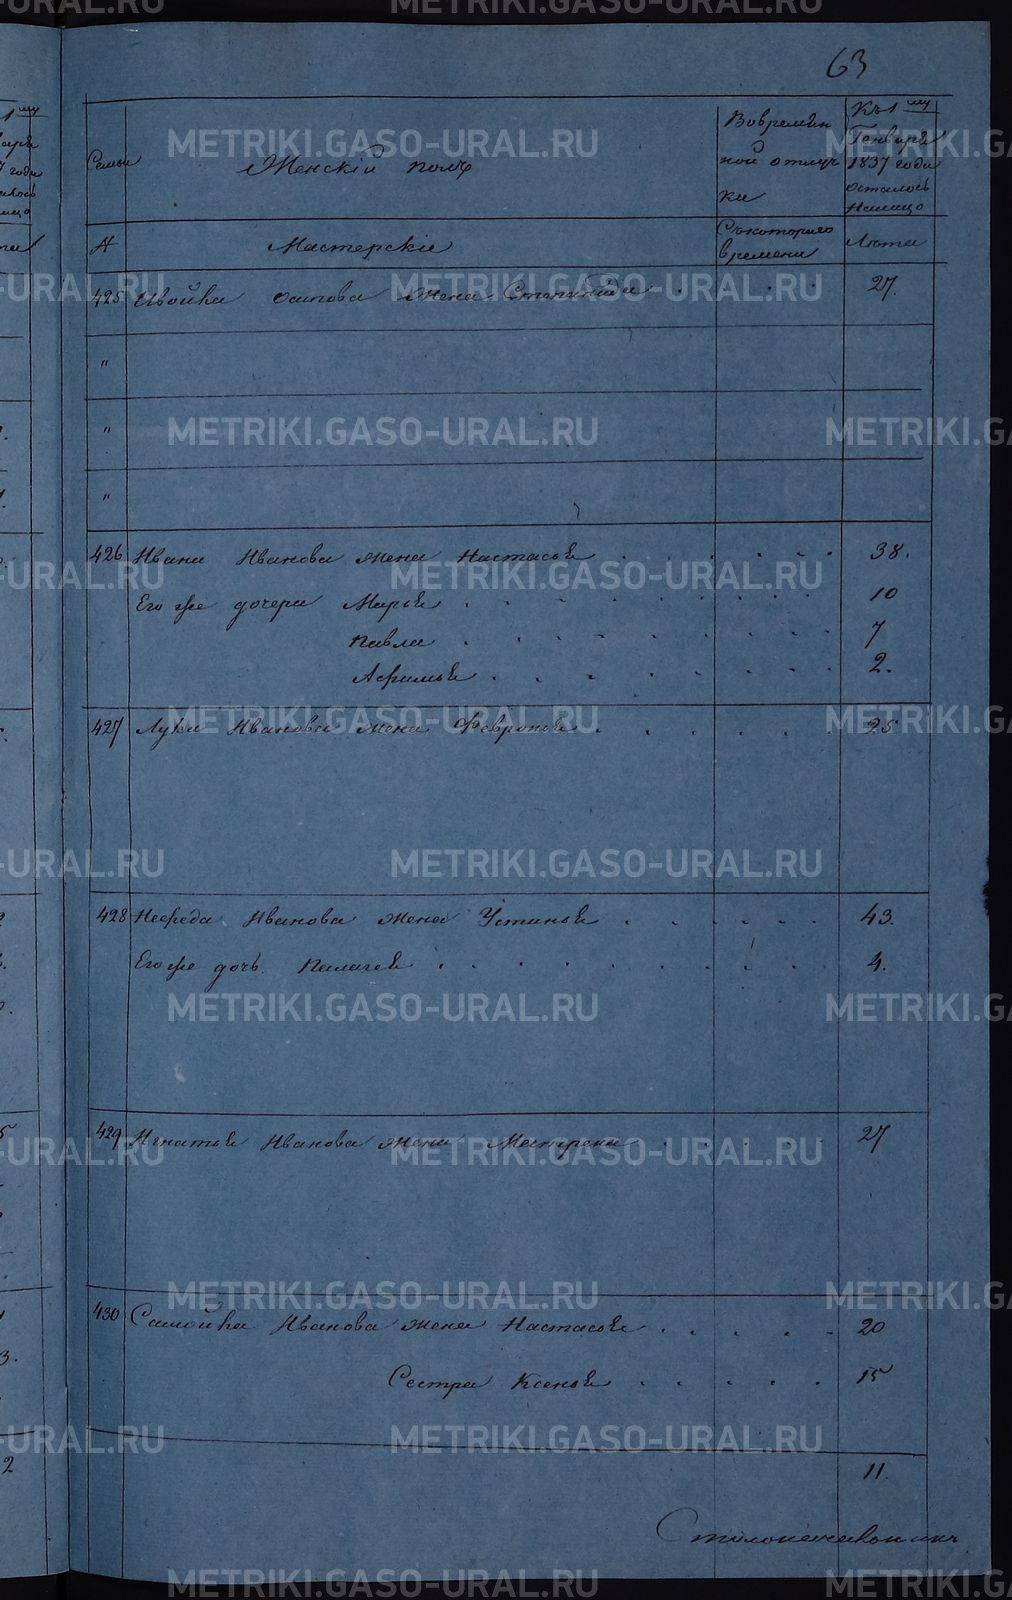 63
Семьи
Женскій полъ
Вовремян
ной отлуч
ки
Къ 1му
Генваря
1837 года
осталось
Налицо
№
Мастерскіе
Съкотораго
времени
Лѣта
425 Ивойки Осипова жена Степанида 27.
"
"
"
426 Ивана Иванова жена Настасья 38.
Его же дочери Марья 10
Павла 7
Афимья 2.
427 Луки Иванова жена Февронья 25
428 Нефеда Иванова жена Устинья 43.
Его же дочь Палагея 4.
429 Игнатья Иванова жена Матрена 27
430 Самойла Иванова жена Настасья 20
Сестра Ксенья 15
11.
METRIKI.GASO-URAL.RU